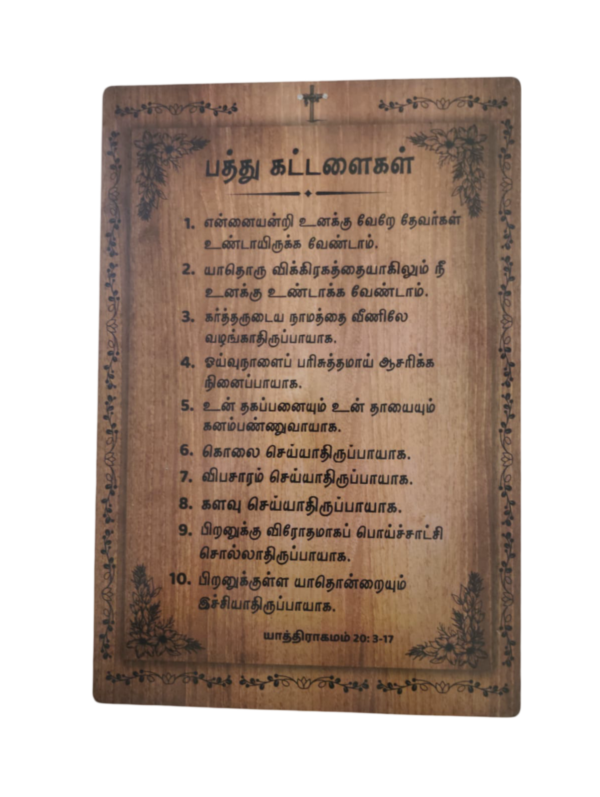 பத்து கட்டளைகள்
1. என்னையன்றி உனக்கு வேறே தேவர்கள்
உண்டாயிருக்க வேண்டாம்.
2. யாதொரு விக்கிரகத்தையாகிலும் நீ
உனக்கு உண்டாக்க வேண்டாம்.
3. கர்த்தருடைய நாமத்தை வீணிலே
வழங்காதிருப்பாயாக.
4. ஓய்வுநாளைப் பரிசுத்தமாய் ஆசரிக்க
நினைப்பாயாக.
5. உன் தகப்பனையும் உன் தாயையும்
கனம்பண்ணுவாயாக.
6. கொலை செய்யாதிருப்பாயாக.
7. விபசாரம் செய்யாதிருப்பாயாக.
8. களவு செய்யாதிருப்பாயாக.
9. பிறனுக்கு விரோதமாகப் பொய்ச்சாட்சி
சொல்லாதிருப்பாயாக.
10. பிறனுக்குள்ள யாதொன்றையும்
இச்சியாதிருப்பாயாக.
யாத்திராகமம் 20: 3-17